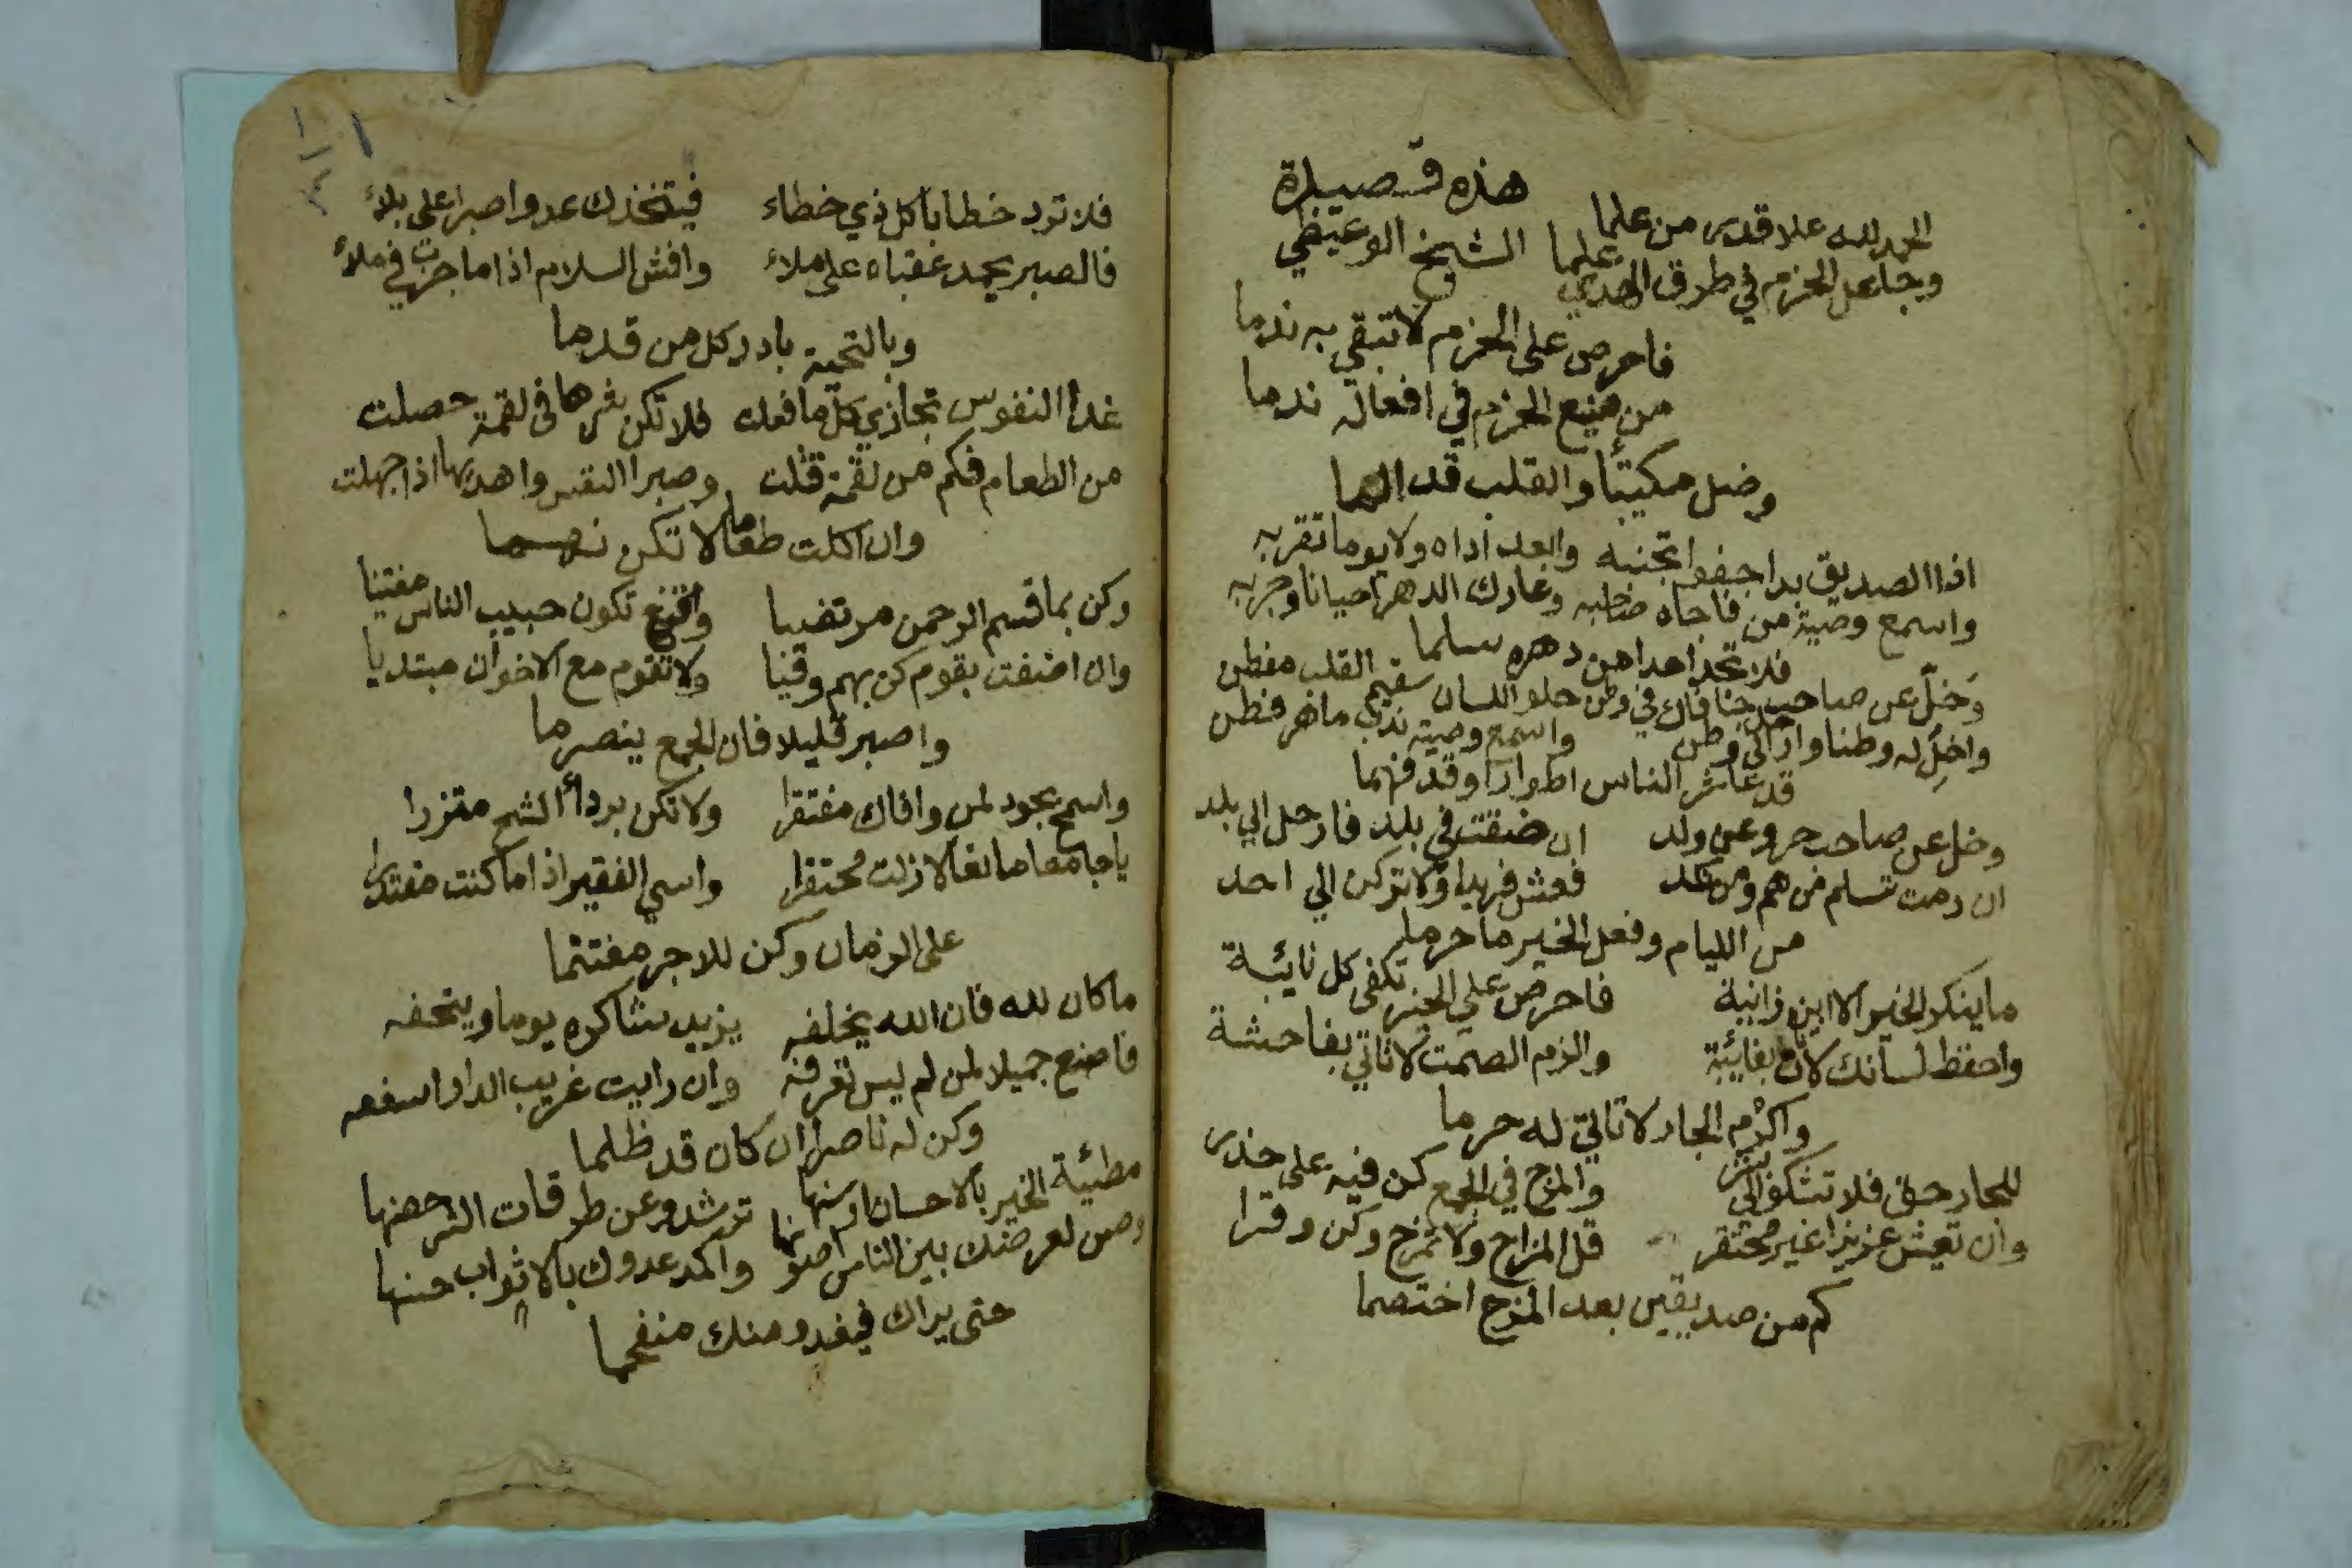 هذه قصيدة
الحمد لله علا قدى من علما
الشيخ الوعيظي
وجاعل الحزم في طرق الهدي علما
فاحرص على الحزم لا تبقي به ندما
من ضيع الحزم في افعاله ندما
وضل مكيتأ والقلب قد الما
اذا الصديق بدا جفوا تجنبه وابعد اداه ولا يوما تقربه
واسمع وصية من فاجاه صاحبه وعارك الدهر احيانا وجربه
فلا تجد احدا من دهره سلما
وخلّ عن صاحب جنا فاك في وطن حلو اللسان سقيم القلب مفطن
واخلِ له وطنا وارحل الى وطن واسمع وصية ندب ماهر فطن
قد عاشر الناس اطوارا وقد فهما
وخل عن صاحب حر وعن ولد ان ضقت في بلد فارحل الي بلد
ان رمت تسلم من هم ومن نكد فعش فريدا ولا تركن الي احد
من الليام وفعل الخير ما حرما
ما ينكر الخير الا ابن زانية فاحرص علي الخير تكفى كل نايئة
واحفظ لسانك لا بغايئة والزم الصمت لا تاتي بفاحشة
واكرم الجار لا تاتي له حرما
للجار حق فلا تشكو الى بشر والمزح في الجمع كن فيه على حذر
وان تعيش عزيزا غير محتقر قل المزاح ولا تمزح وكن وقرا
كم من صديقين بعد المزح اختصما
فلا ترد خطابا كل ذي خطاء فيتخذك عدوا صبرا على بلاء
فالصبر يحمد عقباه على ملاء وافش السلام اذا ما جزت في ملاء
وبالتحية بادر كل من قدما
غدا النفوس تجازي كل ما فعلت فلا تكن شرها فى لقمة حصلت
من الطعام فكم من لقمة قتلت وصبرا النفس واهديها اذا جهلت
وان اكلت طعاما لا تكن نهما
وكن بما قسم الرحمن مرتضيا واقنع تكون حبيب الناس مفتيا
وان اضفت بقوم كن بهم وقيا ولا تقوم مع الاخوان مبتديا
واصبر قليلا فان الجمع ينصرما
واسمح بجود لمن وافاك مفتقرا ولا تكن بردأ الشح متزرا
يا جامعا مانعا لا زلت محتقرا واسي الفقير اذا ما كنت مقتدرا
على الزمان وكن للاجر مغتنما
ما كان لله فان الله يخلفه يزيد شاكره يوما ويتحفه
فاصنع جميلا لمن لم ليس تعرفه وان رايت غريب الدار اسفعه
وكن له ناصرا ان كان قد ظلما
مطئية الخير بالاحسان ارسنها ترشد وعن طرقات الشر حصنها
وصن لعرضك بين الناس صونا واكمد عدوك بالاثواب حسنها
حتى يراك فيغدو منك منفحما